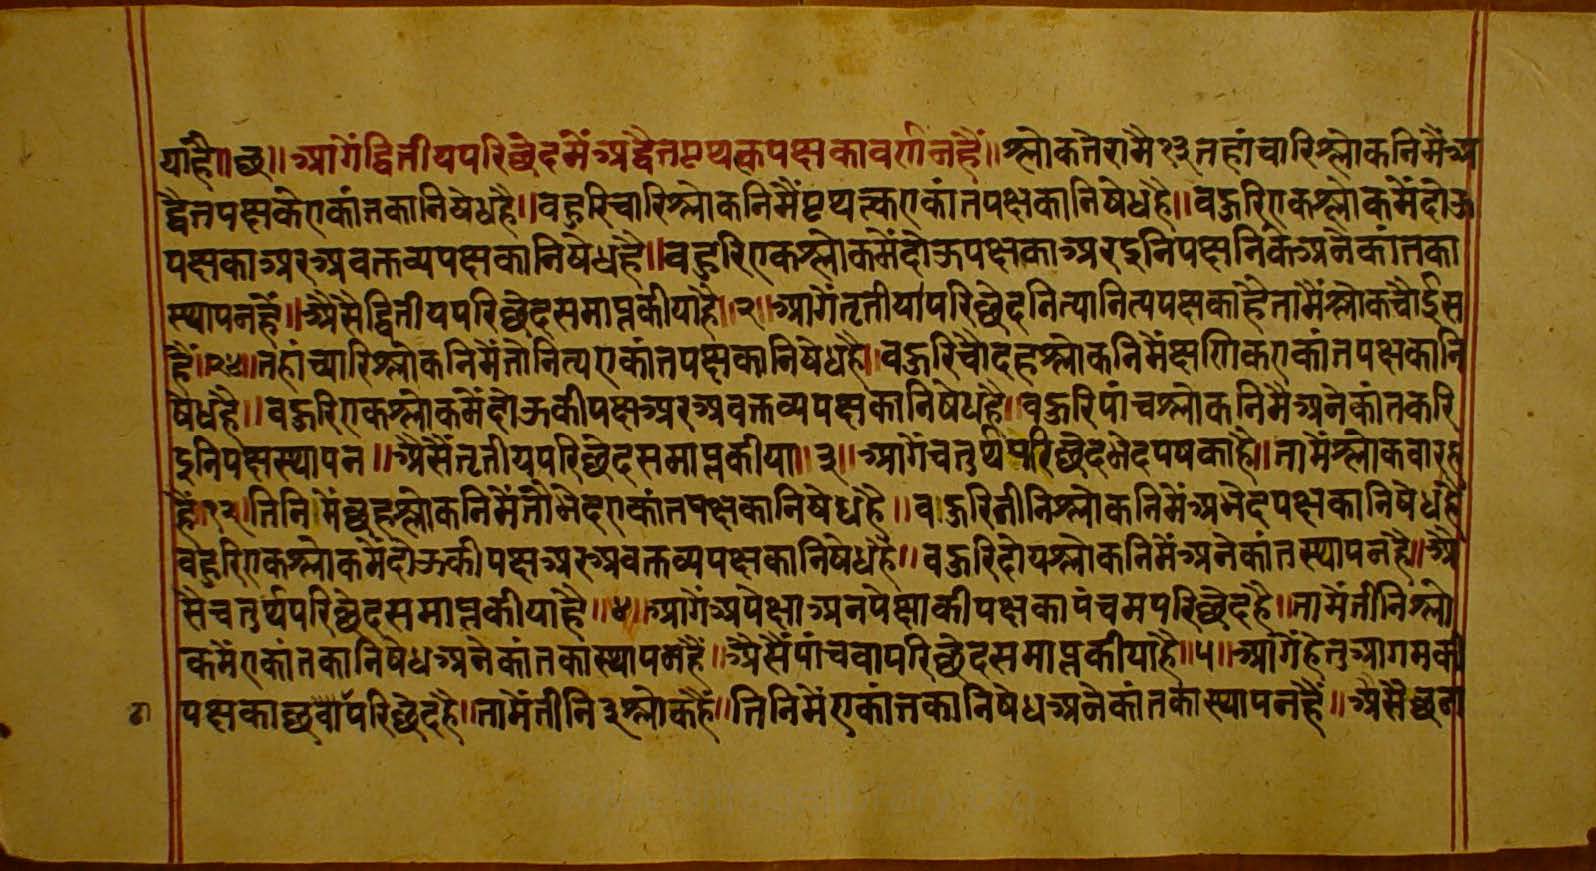 याहै॥छ॥आगेंद्वितीयपरिछेदमेंअद्वैतपृथक्तपक्षकावर्णनहैं॥श्लोकतेरामै१३तहांचारिश्लोकनिमैंअ
द्वैतपक्षकेएकांतकानिषेधहै॥बहुरिचारिश्लोकनिमैंपृथक्त्वएकांतपक्षकानिषेधहै॥बहुरिएकश्लोकमेंदोऊ
पक्षकाअरअवक्तव्यपक्षकानिषेधहै॥बहुरिएकश्लोकमेंदोऊपक्षकाअरइनिपक्षनिकेअनेकांतका
स्थापनहैं॥अैसैद्वितीयपरिछेदसमाप्तकीयाहै॥२॥आगेंतृतीयापरिछेदनित्यानित्यपक्षकाहैतामैंश्लोकचौईस
हैं॥२४॥तहांच्यारिश्लोकनिमैंतोनित्यएकांतपक्षकानिषेधहै॥बहुरिचौदहश्लोकनिमैंक्षणिकएकांतपक्षकानि
षेधहै॥बहुरिएकश्लोकमेंदोऊकीपक्षअरअवक्तव्यपक्षकानिषेधहै॥बहुरिपांचश्लोकनिमैंअनेकांतकरि
इनिपक्षस्थापन॥अैसैंतृतीयपरिछेदसमाप्तकीया॥३॥आगेंचतुर्थपरिछेदभेदपषकाहै॥तामेंश्लोकबारह
हैं१२।तिनिमेंछहश्लोकनिमेंतौभेदएकांतपक्षकानिषेधहै॥बहुरितीनिश्लोकनिमेंअभेदपक्षकानिषेधहै
बहुरिएकश्लोकमेंदोऊकीपक्षअरुअवक्तव्यपक्षकानिषेधहै॥बहुरिदोयश्लोकनिमेंअनेकांतस्थापनहै॥अै
सैचतुर्थपरिछेदसमाप्तकीयाहै॥४॥आगेंअपेक्षाअनपेक्षाकीपक्षकापंचमपरिछेदहै॥तामेंतीनिश्लो
कमेंएकांतकानिषेधअनेकांतकास्थापनहैं॥अैसैंपांचवापरिछेदसमाप्तकीयाहै॥५॥आगेंहेतुआगमकी
पक्षकाछवॉपरिछेदहै॥तामेंतीनि३श्लोकहैं॥तिनिमेंएकांतकानिषेधअनेकांतकास्थापनहैं॥अैसैछठा